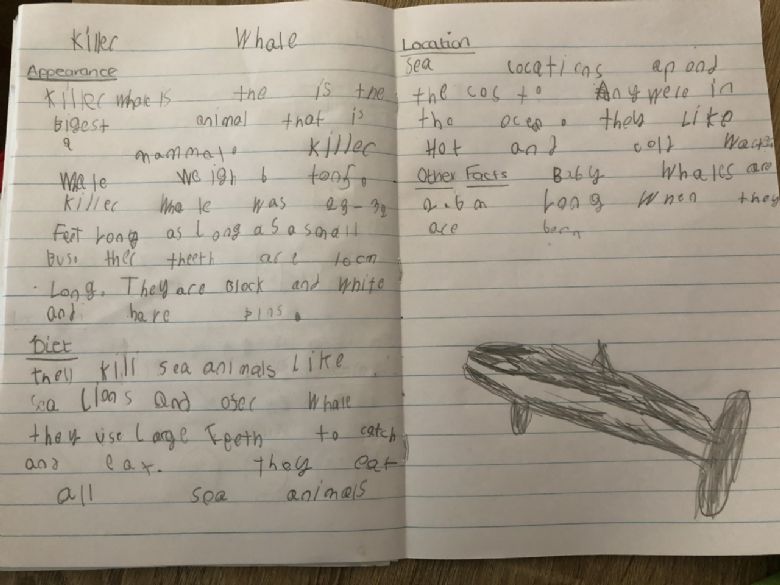 Killer Whale
Appearance
Killer whale is the is the
bigest animal that is
a mammal. Killer
Wale weigh 6 tons.
Killer Whale was 28-32
Feet Long as Long as a small
bus. ther theeth are 10cm
Long. They are Black and white
and have fins.
Diet
they kill sea animals like
sea Lions and oser Whale
they use Large Teeth to catch
and eat. they eat
all sea animals
Location
Sea locations apond
the cos to Anywere in
the ocen. they Like
Hot and cold
Other Facts Baby Whales are
2.6m Long When they
are born